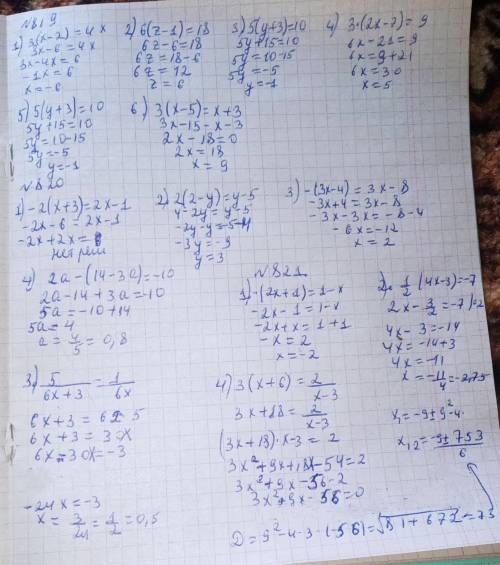 №819
1) 3(x-2)=4x
3x-6=4x
3x-4x=6
-1x=6
x=-6
2) 6(z-1)=18
6z-6=18
6z=18-6
6z=12
z=6
3) 5(y+3)=10
5y+15=10
5y=10-15
5y=-5
y=-1
4) 3·(2x-7)=9
6x-21=9
6x=9+21
6x=30
x=5
5) 5(y+3)=10
5y+15=10
5y=10-15
5y=-5
y=-1
6) 3(x-5)=x+3
3x-15-x-3
2x-18=0
2x=18
x=9
№820
1) -2(x+3)=2x-1
-2x-6=2x-1
-2x+2x=
нет реш
2) 2(2-y)=y-5
4-2y=y-5
-2y-y=-5-4
-3y=-9
y=3
3) -(3x-4)=3x-8
-3x+4=3x-8
-3x-3x=-8-4
-6x=-12
x=2
4) 2a-(14-3a)=-10
2a-14+3a=-10
5a=-10+14
5a=4
a=4/5=0,8
№821
1) -(2x+1)=1-x
-2x-1=1-x
-2x+x=1+1
-x=2
x=-2
2) 1/2(4x-3)=-7
2x-3/2=-7)·2
4x-3=-14
4x=-14+3
4x=-11
x=-11/4=-2,75
3) 5/(6x+3)=1/6x
6x+3=6x·5
6x+3=30x
6x-30x=-3
-24x=-3
x=3/24=1/2=0,5
4) 3(x+6)=2/(x-3)
3x+18=2/(x-3)
(3x+18)·x-3=2
3x²+9x+18x-54=2
3x²+9x-56-2
3x²+9x-56=0
D=9²-4·3·(-56)=√81+672=753
x₁=-9±9²-4·
x₁₂=-9±753/6